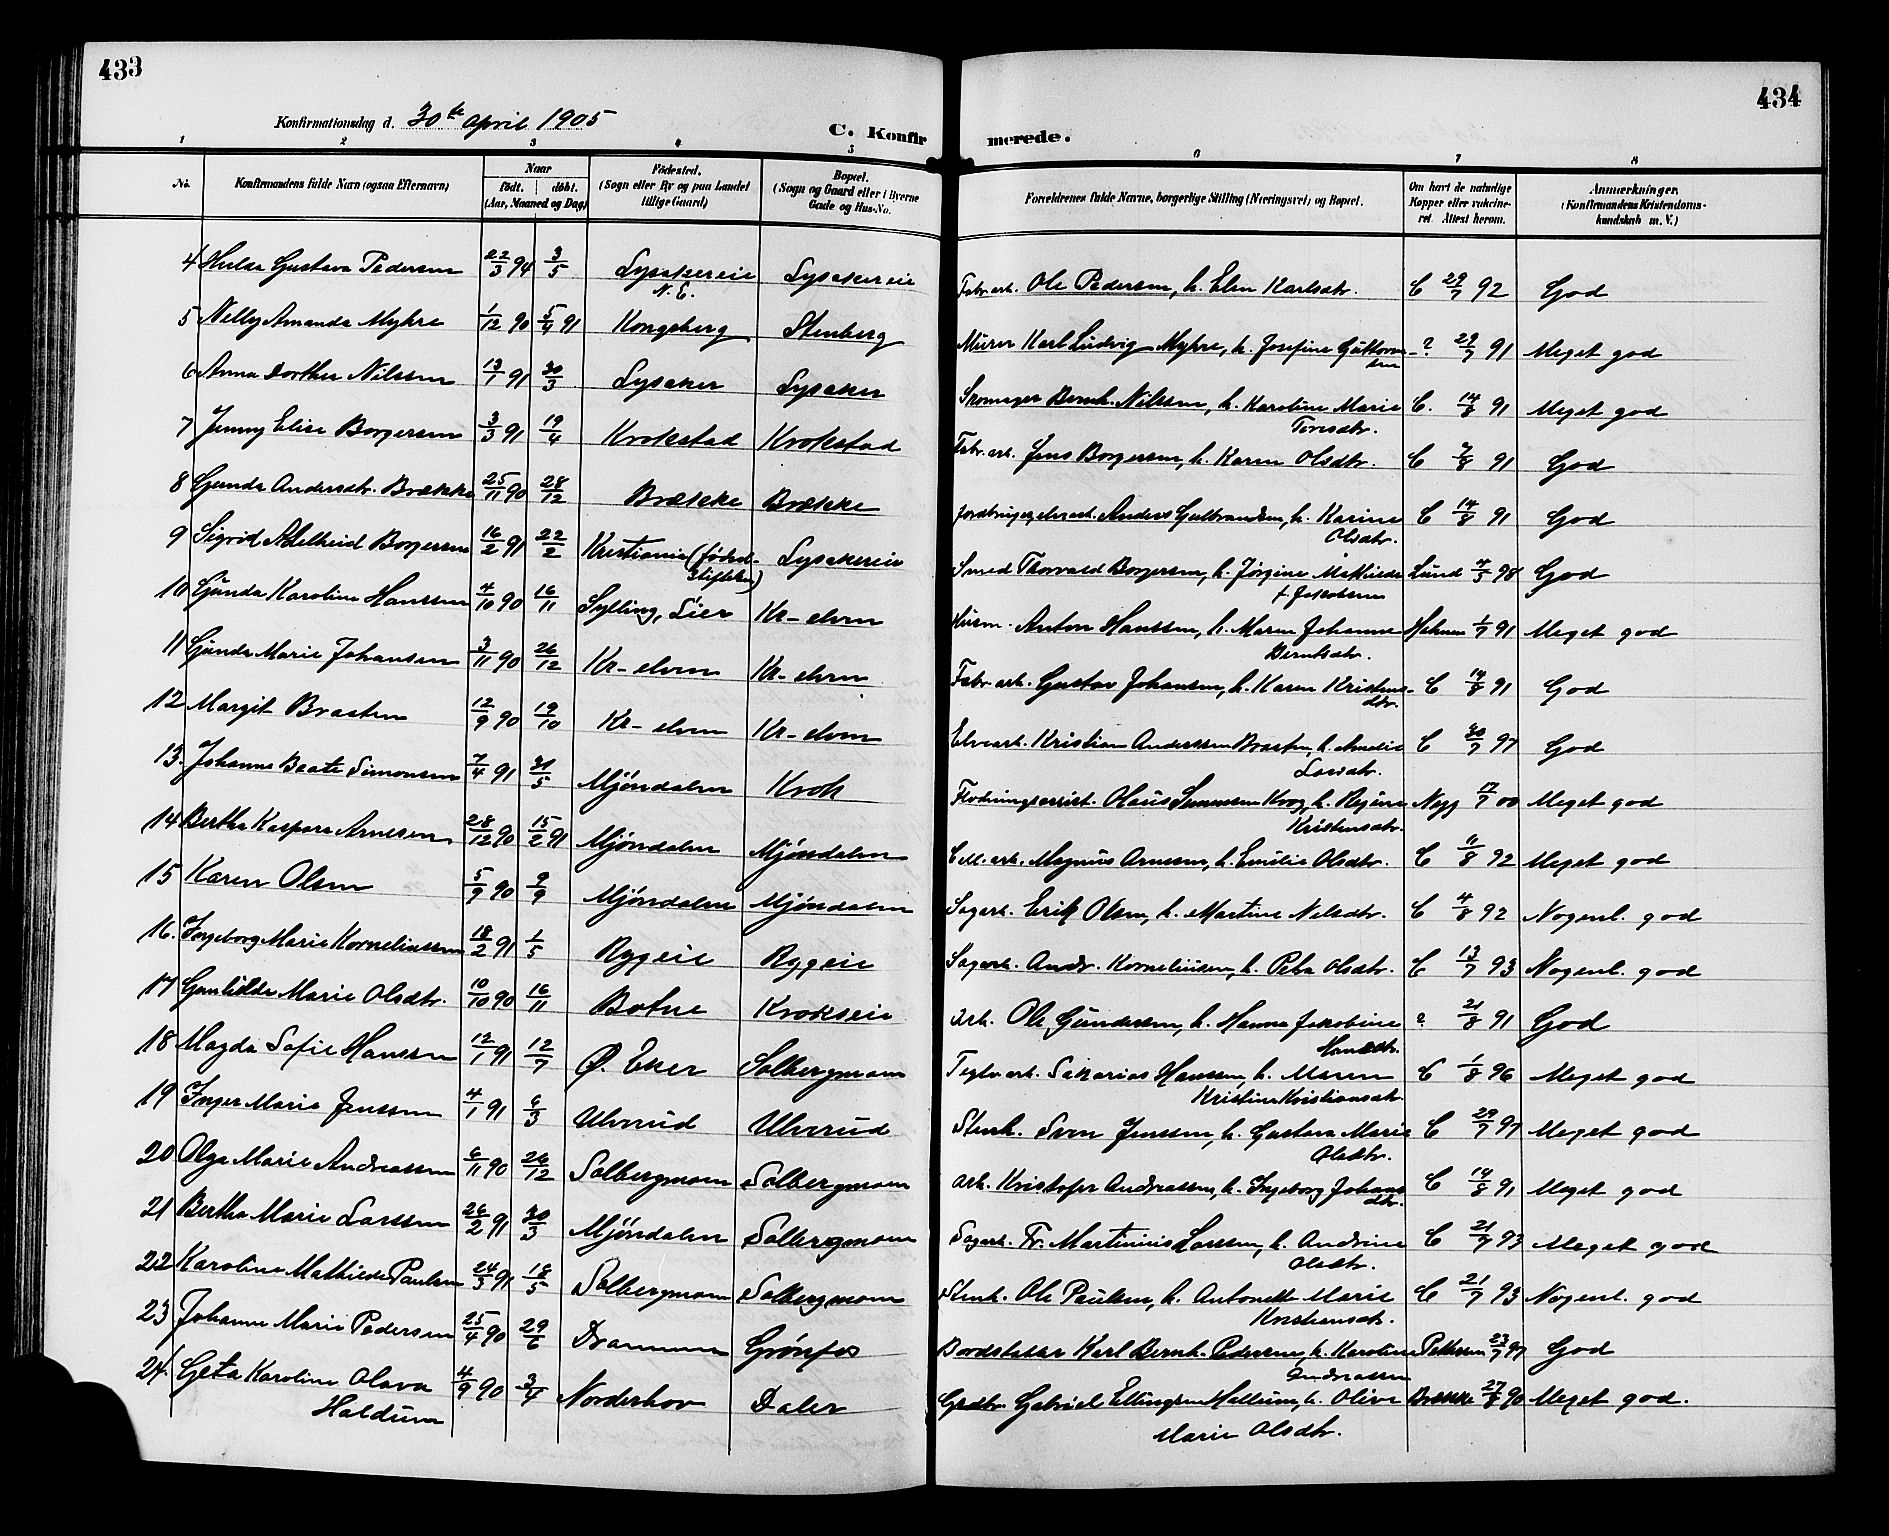 433
434
Konfirmationsdag d. 30te april 1905
C. Konfir
merede.
1 2 3 4 5 6 7 8
No.
Konfirmandens fulde Navn (ogsaa Efternavn)
Naar
født. døbt.
(Aar, Maaned og Dag)
Fødested.
(Sogn eller By og paa Landet
tillige Gaard)
Bopæl.
(Sogn og Gaard eller i Byerne
Gade og Hus-No.
Forældrenes fulde Navne, borgerlige Stilling (Næringsvei) og Bopæl.
Om havt de naturlige
Kopper eller vakcine-
ret Attest herom.
Anmerkninger,
(Konfirmandens Kristendoms-
kundskab m. V.)
4 Hulda Gustava Pedersen 22/3 94 3/5 Lysakereie N. E. Lysakereie Fabr. arb. Ole Pedersen, h. Elen Karlsdtr. C 29/7 92 God
5 Nelly Amanda Myhre 1/12 90 5/4 91 Kongsberg Stenberg Murer Karl Ludvig Myhre, h. Josefine Guttorm-
sen ? 29/7 91 Meget god
6 Anna Dorthea Nilssen 13/1 91 30/3 Lysaker Lysaker Skomager Bernh. Nilssen, h. Karoline Marie
Toresdtr. C. 14/8 91 Meget god
7 Jenny Elise Borgersen 3/3 91 19/4 Krokstad Krokstad Fabr. arb. Jens Borgersen, h. Karen Olsdtr. C 7/8 91 God
8 Gunda Andersdtr. Brække 25/11 90 28/12 Brække Brække Jordbruger, elvearb. Anders Gulbrandsen, h. Karine
Olsdtr. C 14/8 91 God
9 Sigrid Adelheid Borgersen 16/2 91 22/2 Kristiania (føds.-
stiftelse) Lysakereie Smed Thorvald Borgersen, h. Jørgine Mathilde
f. Jakobsen Lund 4/5 98 God
10 Gunda Karoline Hanssen 4/10 90 16/11 Sylling, Lier Kr-elven Husm. Anton Hanssen, h. Maren Johanne
Berntsdtr. 1/7 91 Meget god
11 Gunda Marie Johansen 3/11 90 26/12 Kr-elven Kr-elven Fabr. arb. Gustav Johansen, h. Karen Kristens-
dtr. C 14/8 91 God
12 Margit Braaten 12/9 90 19/10 Kr-elven Kr-elven Elvearb. Kristian Anderssen Braaten, h. Amalie
Larsdtr. C 30/7 97 God
13. Johanne Beate Simonsen 7/4 91 31/5 Mjøndalen Krok Flødningsassist. Olaus Simonsen Krog, h. Regine
Kristensdtr. 17/7 00 Meget god
14 Bertha Kaspara Arnesen 28/12 90 15/2 91 Mjøndalen Mjøndalen Cell. arb. Magnus Arnesen, h. Emilie Olsdtr. C 11/8 92 Meget god
15 Karen Olsen 5/9 90 9/9 Mjøndalen Mjøndalen Sagarb. Erik Olsen, h. Martine Nelsdtr. C 4/8 92 Nogenl. god
16. Ingeborg Marie Korneliussen 18/2 91 1/5 Rygeie Rygeie Sagarb. Andr. Korneliusen, h. Petra Olsdtr. C 13/7 93 Nogenl. god
17 Gunhilda Marie Olsdtr. 10/10 90 16/11 Botne Krokseie Arb. Ole Gundersen, h. Hanna Jakobine
Hansdtr. ? 21/8 91 God
18 Magda Sofie Hanssen 12/1 91 12/7 Ø. Eker Solbergmoen Teglv. arb. Sakarias Hanssen, h. Maren
Kristine Kristiansdtr. C 1/8 96 Meget god
19 Inger Marie Jenssen 4/1 91 6/3 Ulverud Ulverud Stenh. Sven Jenssen, h. Gustava Marie
Olsdtr. C 29/7 97 Meget god
20 Olga Marie Andreassen 6/11 90 26/12 Solbergmoen Solbergmoen Arb. Kristofer Andreassen, h. Ingeborg Johans-
dtr. C 14/8 91 Meget god
21 Bertha Marie Larssen 26/2 91 30/3 Mjøndalen Solbergmoen Sagarb. Fr. Martinius Larssen, h. Andrine
Olsdtr. C 21/7 93 Meget god
22 Karoline Mathilde Paulsen 24/3 91 18/5 Solbergmoen Solbergmoen Stenh. Ole Paulsen, h. Antonette Marie
Kristiansdtr. C 21/7 93 Nogenl. god
23 Johanne Marie Pedersen 25/4 90 29/6 Drammen Grønfos Bordstabler Karl Bernh. Pedersen, h. Karoline
Andreassen Pettersen 23/7 97 God
24. Geta Karoline Olava
Haldum 4/9 90 3/4 Norderhov Daler Grdbr. Gabriel Ellingsen Hallum, h. Olive
Marie Olsdtr. Brække 27/8 90 Meget god.